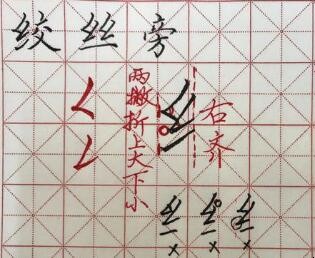 绞丝旁
两撇折上大下小
右齐